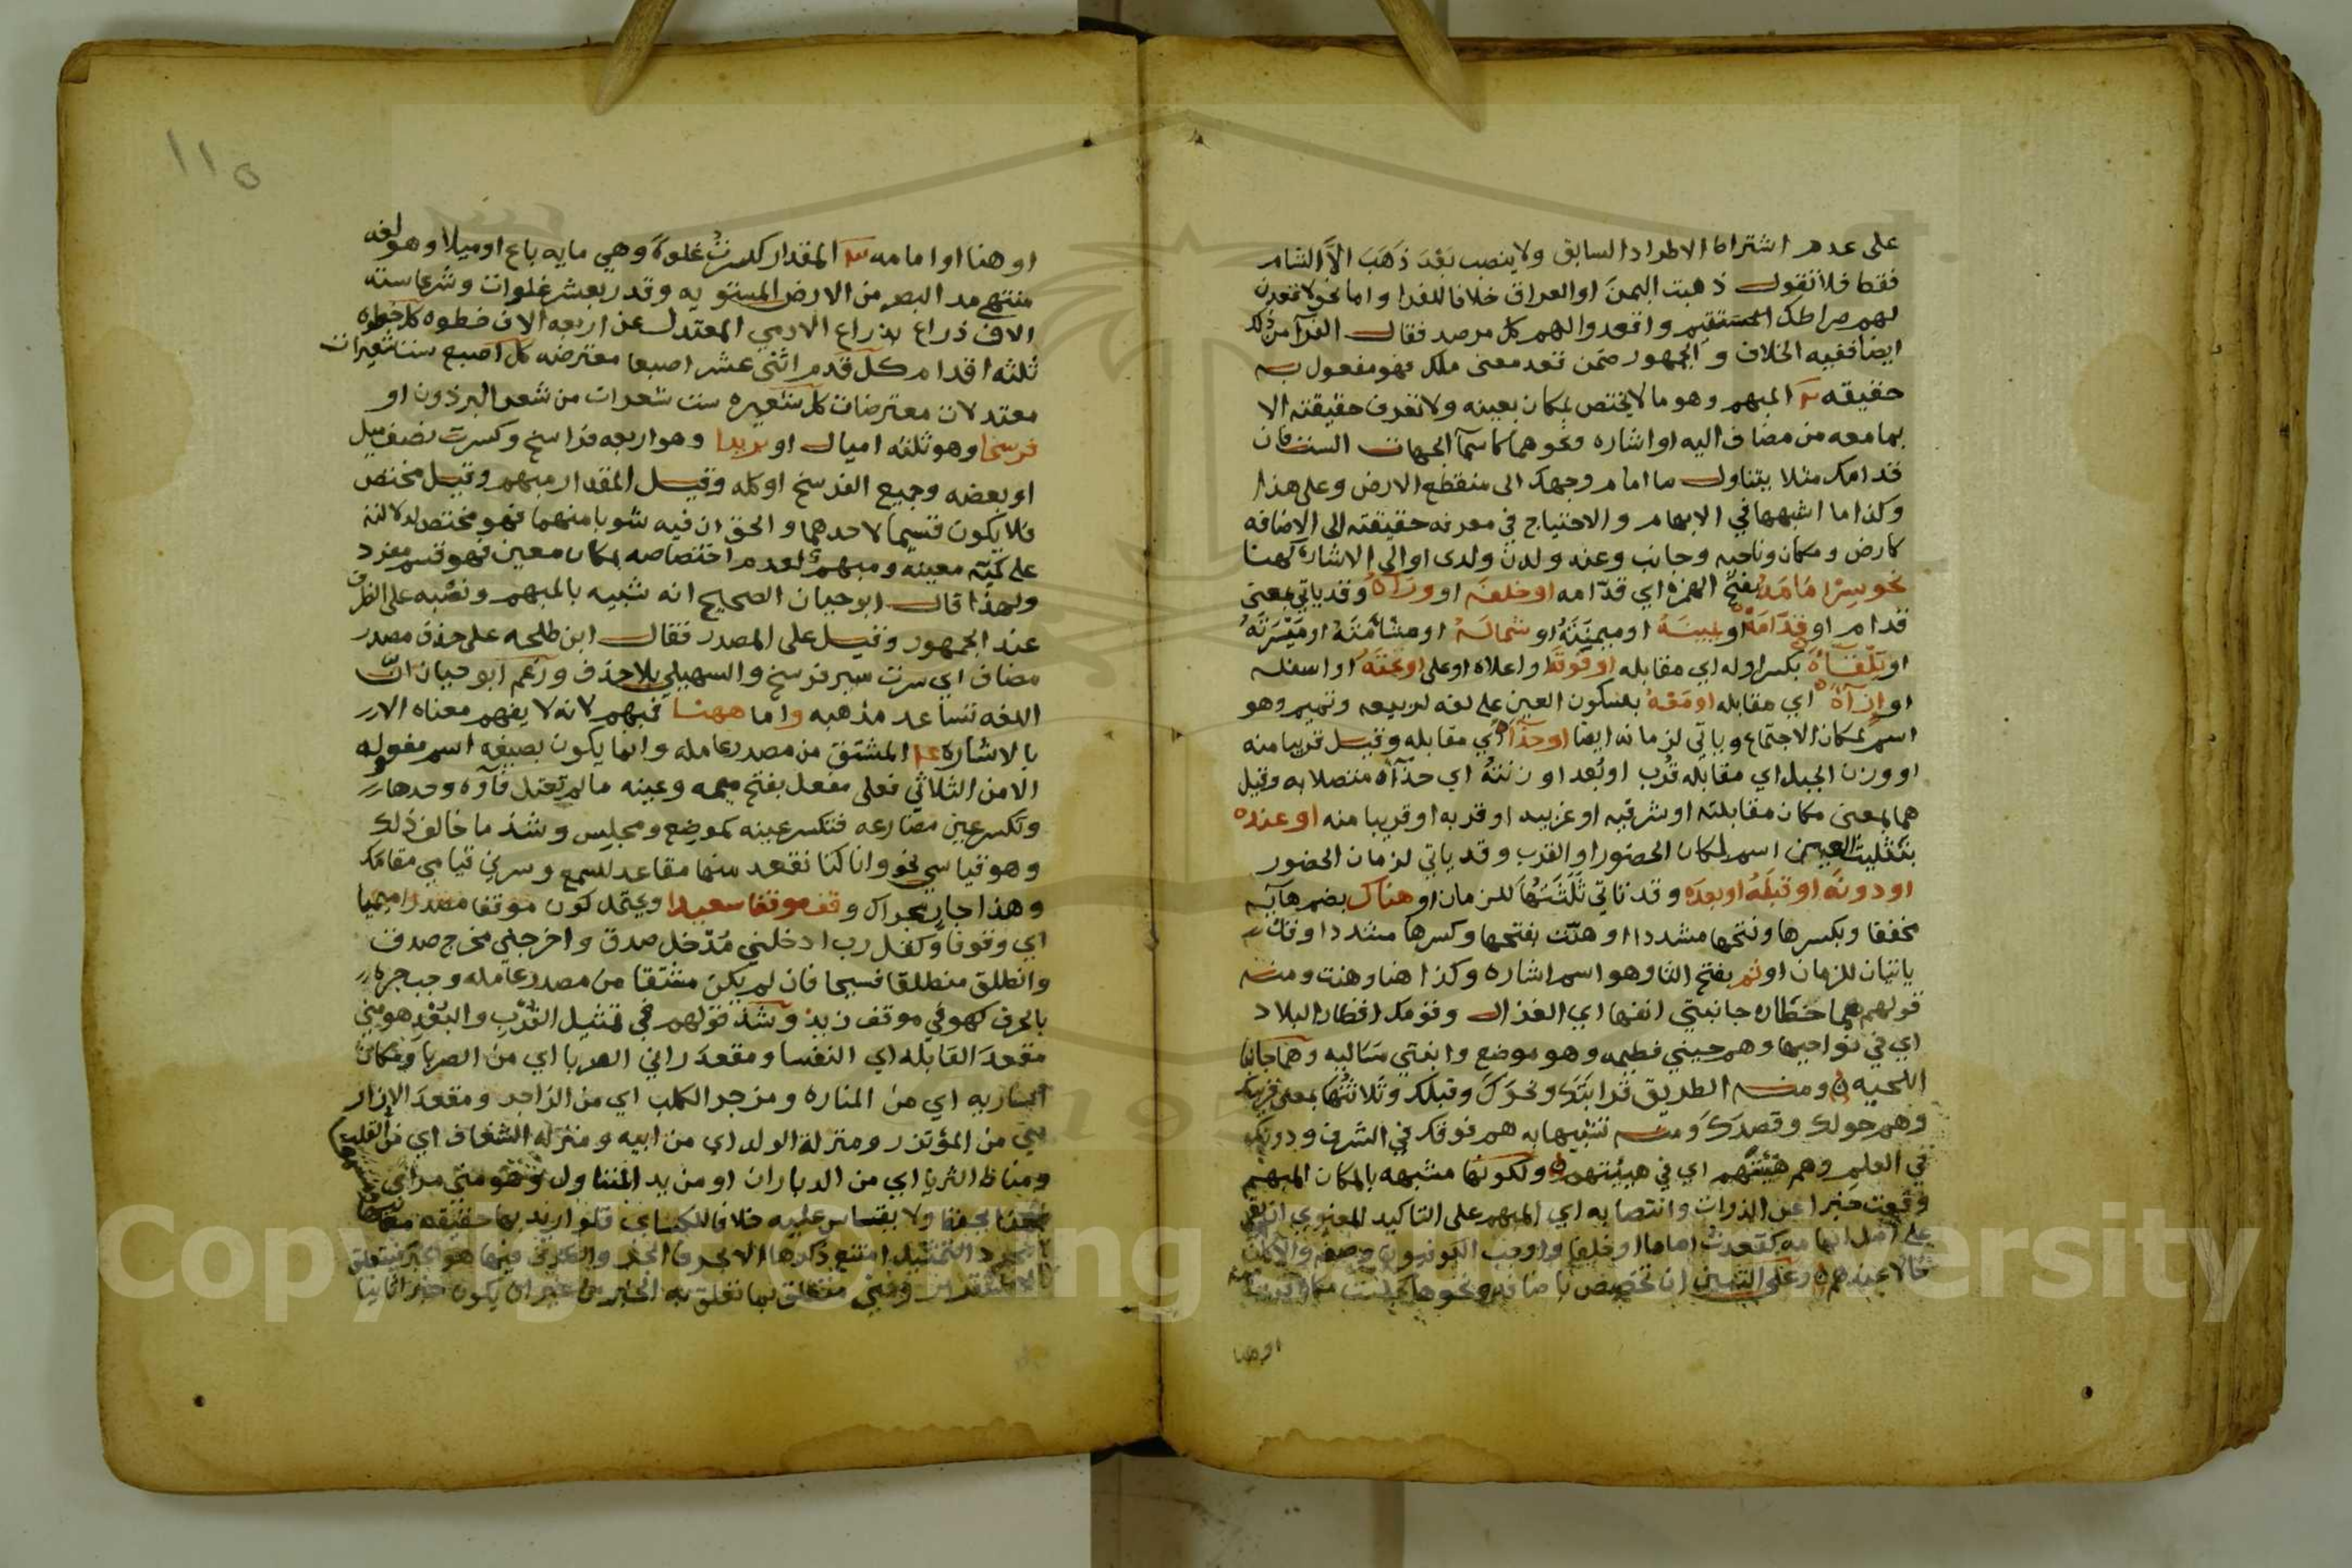 على عدم اشتراط الاطراد السابق ولا ينصب بَعْدَ ذَهَبَ الاَّ الشام
فقط فلا تقول ذهبت اليمنَ او العراق خلافا للفرا واما نحو لاقعدن
لهم صراطك المستقيم واقعدوا لهم كل مرصد فقال الفرآ من ذلك
ايضا ففيه الخلاف والجمهور ضمن تقعد معنى ملك فهو مفعول به
حقيقه المبهم وهو ما لا يختص بمكان بعينه ولا تعرف حقيقته الا
بما معه من مضاف اليه او اشاره ونحوهما كاسمآ الجهات الست فان
قدامك مثلا يتناول ما امام وجهك الى منقطع الارض وعلى هذا
وكذا ما اشبهها في الابهام والاحتياج في معرفه حقيقته الى الاضافه
كارض ومكان وناحيه وجانب وعند ولدن ولدى او الى الاشارة كهنا
نحو سِرْ امَامَهُ بفتح الهمزه اي قدّامه او خلفَه او ورَاَهُ وقد ياتي بمعنى
قدام او قدَّامَهُ او يمينَهُ او ميمَنَتَهُ او شمالَهُ او مشْأَمَتَهُ او مَيْسَرَتَهُ
او تِلْقَاَهُ بكسر اوله اي مقابله او فوقَهُ او اعلاه او على او تحتَهُ او اسفله
او ازآهُ اي مقابله او مَعْهُ بسكون العين على لغه لربيعه وتميم وهو
اسم لمكان الاجتماع وياتي لزمانه ايضا او حذَآَهُ اي مقابله وقيل قريبا منه
او وزن الجبل اي مقابله قَرُب او بَعُد او زنتهُ اي حذَآَه متصلا به وقيل
هما بمعنى مكان مقابلته او شرقيه او غربيه او قربه او قريبا منه او عنده
بتثليث العين اسم لمكان الحضور او القرب وقد ياتي لزمان الحضور
او دونَه او قبلَهُ او بعدَه وقد تاتي ثَلَثَتُهَا للزمان او هناك بضم هآيه
مخففا وبكسرها وفتحها مشددا او هنَّت بفتحها وكسرها مشددا وقد
ياتيان للزمان او ثم بفتح الثا وهو اسم اشاره وكذا هنا وهنت ومنه
قولهم هما خطان جانبتي انفها اي الغزال وقومك اقطار البلاد
اي في نواحيها وهم حيني فطيمه وهو موضع وابغتي وهما جانبا
اللحيه ومنه الطريق قرابتَك ونحوَك وقبلك وثلاثتُها بمعنى قريبك
وهم حولك وقصدَكَ ومنه تشبيها به هم فوقك في الشرف ودونك
في العلم وهم هيئتهم اي في هيئتهم ولكونها مشبهه بالمكان المبهم
وقعت خبرا عن الذوات وانتصابه اي المبهم على التاكيد المعنوي ان بقي
على اصل ابهامه كقعدتُ اماما او خلفا واوجب الكوفيون وصفه والا كان
حالا عندهم وعلى التبيين ان تخصص باضافه ونحوها كجلست مكانا قريبا منه
او هنا
١١٥
او هنا او امامه المقدار كسرتُ غلوةً وهي مايه باع او ميلا وهو لغه
منتهى مد البصر من الارض المستويه وقدر بعشر غلوات وشرعا سته
الاف ذراع بذراع الادمي المعتدل عن اربعه الاف خطوه كل خطوه
ثلثه اقدام كل قدم اثنى عشر اصبعا معترضه كل اصبع ست شعيرات
معتدلات معترضات كل شعيره ست شعرات من شعر البرذون او
فرسخا وهو ثلثه اميال او بريدا وهو اربعه فراسخ وكسرت نصف ميل
او بعضه وجميع الفرسخ او كله وقيل المقدار مبهم وقيل مختص
فلا يكون قسيما لاحدهما والحق ان فيه شوبا منهما فهو مختص لدلالته
على كميّه معينه ومبهم لعدم اختصاصه بمكان معين فهو قسم مفرد
ولهذا قال ابو حيان الصحيح انه شبيه بالمبهم ونصْبه على الظرف
عند الجمهور وقيل على المصدر فقال ابن طلحه على حذف مصدر
مضاف اي سرت سير فرسخ والسهيلي بلا حذف وزعم ابو حيان انّ
اللغه تساعد مذهبه واما ههنا فمبهم لانه لا يفهم معناه الا
بالاشاره المشتق من مصدر عامله وانما يكون بصيغه اسم مفعوله
الا من الثلاثي فعلى مفعل بفتح ميمه وعينه ما لم تعتل فآؤه وحدها
وتكسر عين مضارعه فتكسر عينه كموضِع ومجلِس وشذ ما خالف ذلك
وهو قياسي نحو وانا كنا نقعد منها مقاعد للسمع وسرني قيامي مقامك
وهذا جارٍ مجراك وقف موقفا سعيدا ويحتمل كون موقفا مصدرا ميميا
اي وقوفا وكقل رب ادخلني مُدْخل صدق واخرجني مخرج صدق
وانطلق منطلقا فسيحا فان لم يكن مشتقا من مصدر عامله وجب جره
بالحرف كهو في موقف زيد وشذ قولهم في تمثيل القُرْبِ والبُعْدِ هو مني
مقعدَ القابله اي النفسا ومقعدَ رابئ الضربا اي من الضربا ومكان
الساريه اي من المناره ومزجر الكلب اي من الزاجر ومقعدَ الازار
مني من المؤتزر ومنزلة الولد اي من ابيه ومنزله الشغاف اي من القلب
ومناط الثريا اي من الدبران او من يد المتناول وهو مني مرأى
ومسمعا
ولا يقاس عليه خلافا للكساي فلو اريد بها حقيقه معانيها
لا مجرد التمثيل امتنع ذكرها الا بحرف الجر والظرف فيها هو الخبر